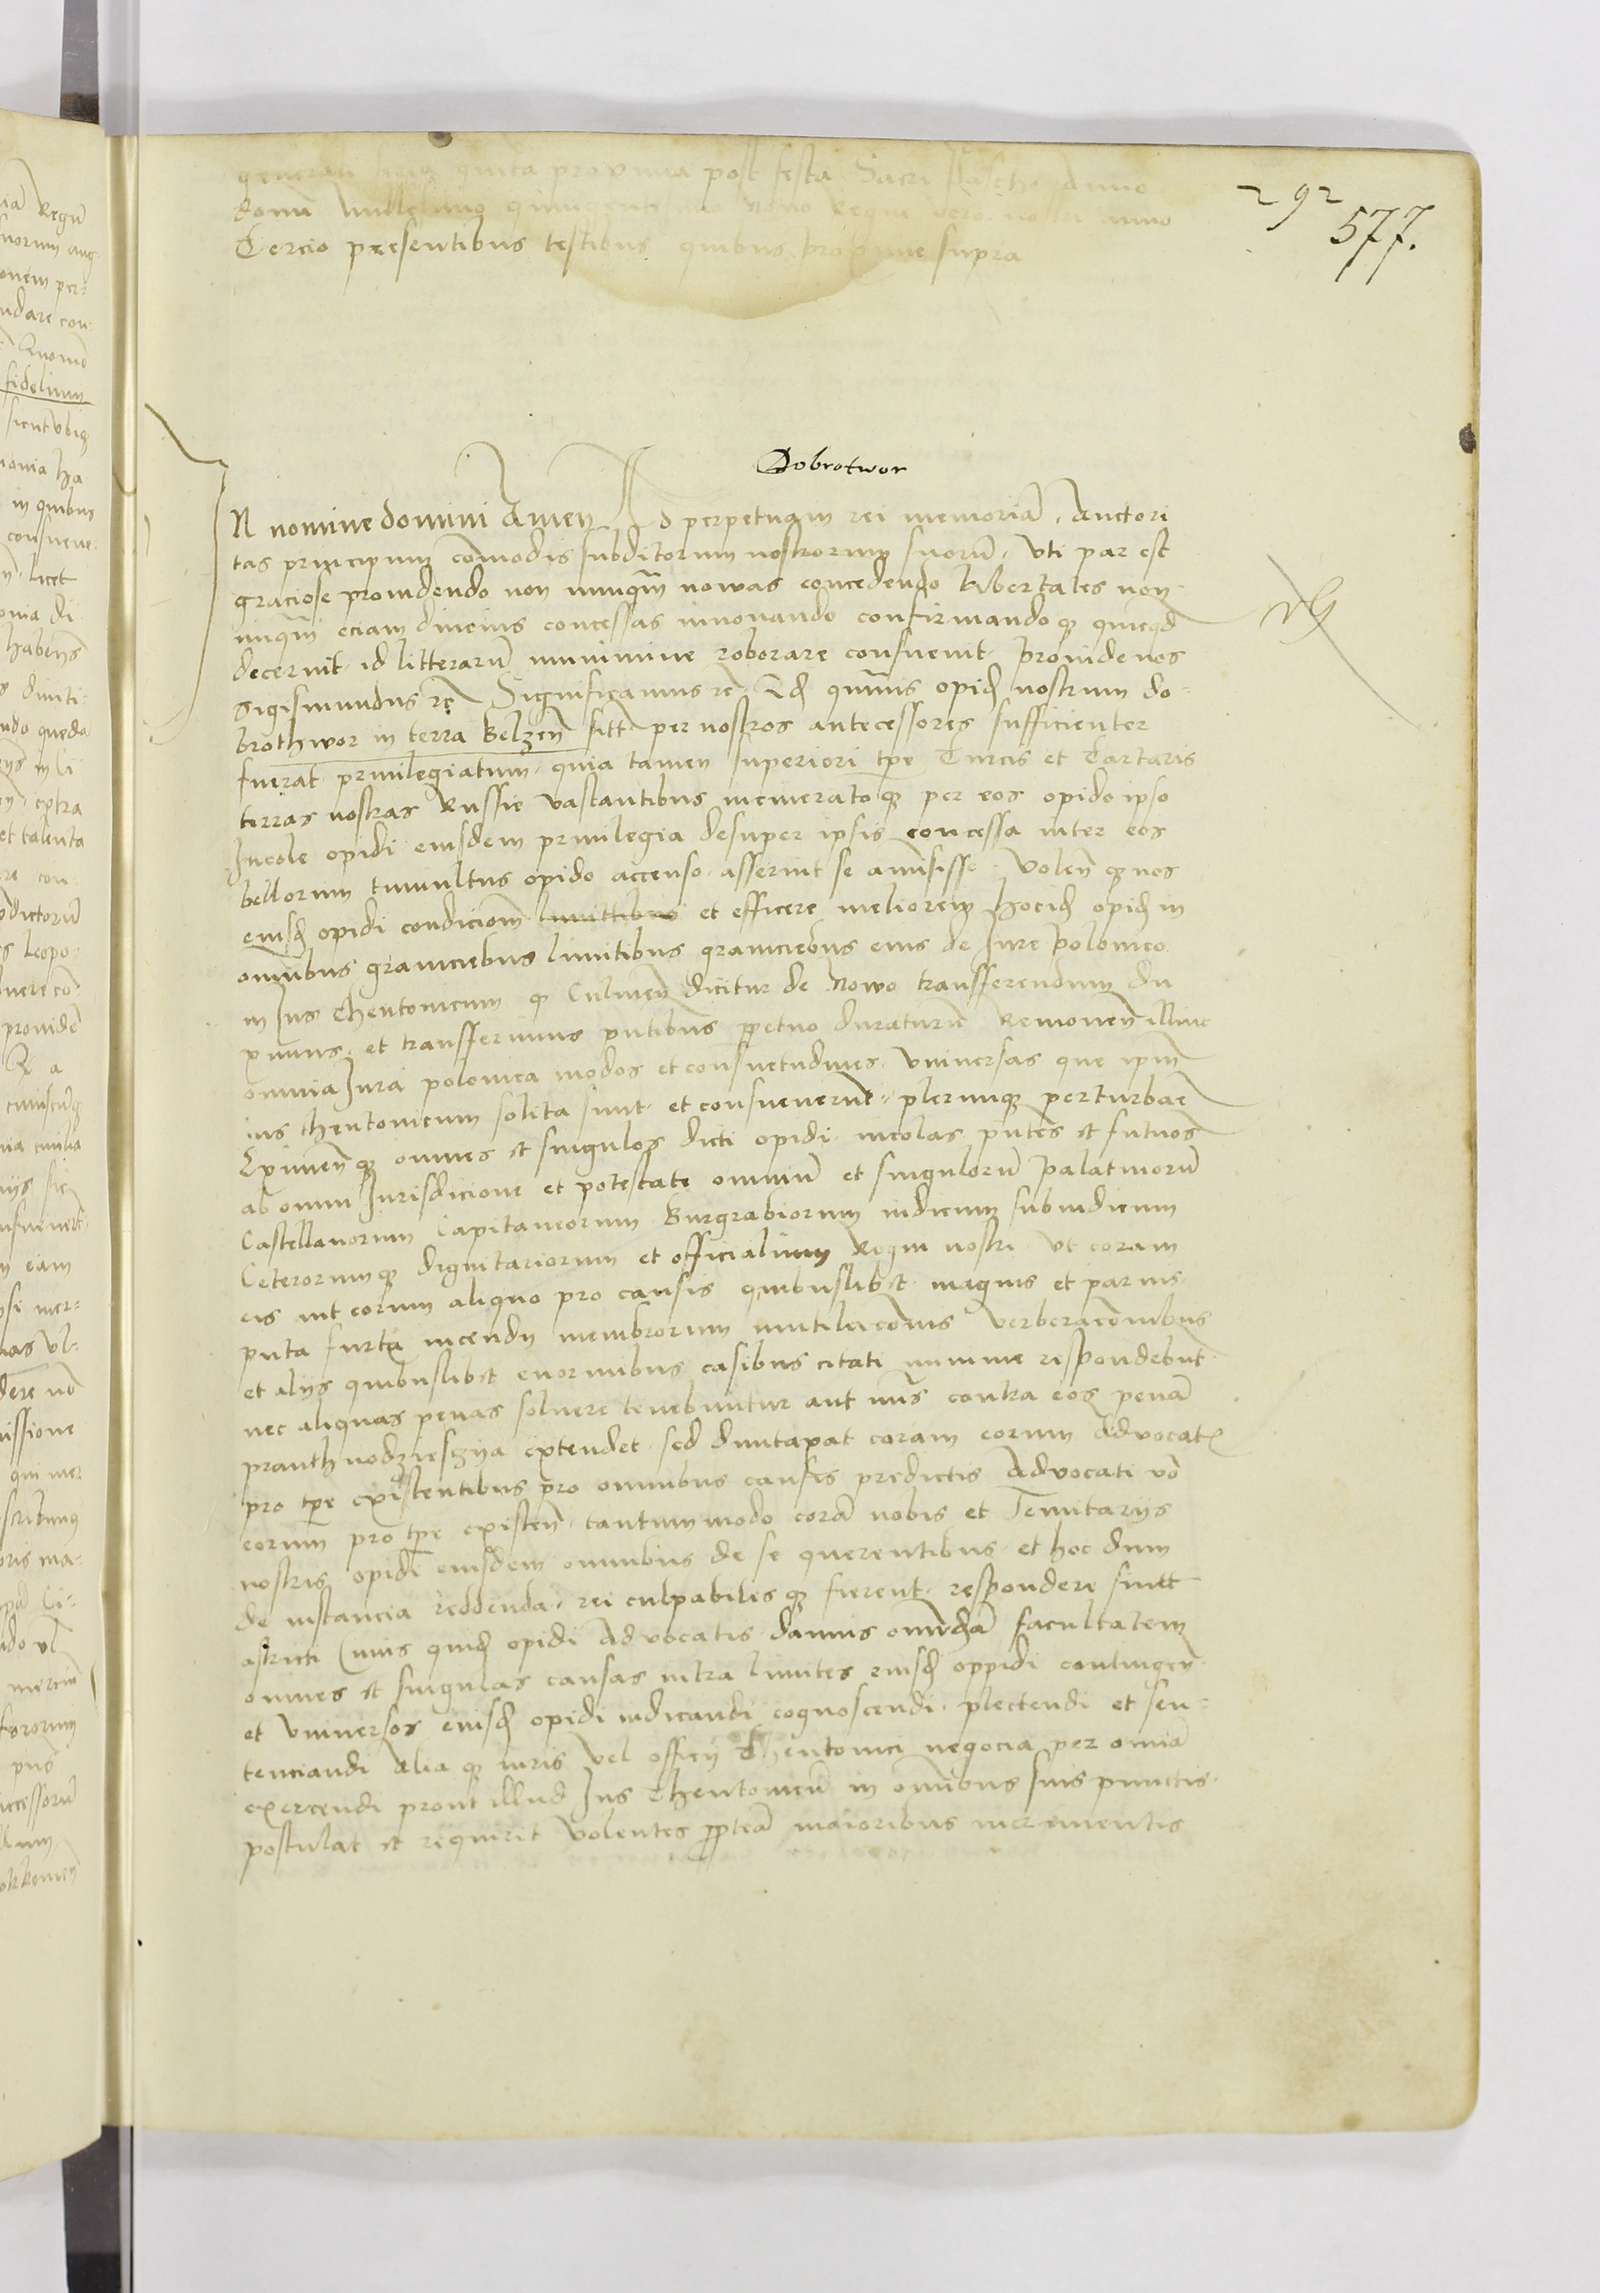 generali feria quinta proxima post festa Sacri Pasche Anno
domini millesimo quingentesimo nono Regni vero nostri anno
Tercio presentibus testibus quibus proxime supra
292
577.
Dobrotwor
IN nomine domini Amen Ad perpetuam rei memoriã. Auctori
tas principum cõmodis subditorum nostrorum suorũ. Vti par est
graciose prouidendo non nunqm̃ nowas concedendo libertates non
nunqm̃ eciam diucius concessas innouando confirmandoq3 quicqd
decernit id litterarũ munimine roborare consueuit. Proinde nos
Sigismundus rc̃ Significamus rc̃ Qd quãuis opid nostrum do-
brothwor in terra Belzeñ sitt per nostros antecessores sufficienter
fuerat priuilegiatum. quia tamen superiori tpe Turcis et Tartaris
terras nostras Russie vastantibus incineratoq3 per eos opido ipso
Incole opidi eiusdem priuilegia desuper ipsis concessa inter eos
bellorum tumultus opido accenso asserunt se amisisse. Volen̄ q3 nos
eiusd opidi condicionẽ limittibus et efficere meliorem hocid opid in
omnibus graniciebus limitibus graniciebus eius de Iure Polonico
in Ius Theutonicum q Culmeñ dicitur de Nowo transferendum du
ximus. et transferimus pñtibus ppetuo duraturũ Remoueñ illinc
omnia Iura polonica modos et consuetudines Vniuersas que ipm̃
ius theutonicum solita sunt et consueuerunt plerumq3 perturbare
Eximeñ q3 omnes et singulos dicti opidi incolas pñtes et futuros
ab omni Iurisdicione et potestate omniũ et singulorũ Palatinorũ
Castellanorum Capitaneorum Burgrabiorum iudicum subiudicum
Ceterorumq3 dignitariorum et officialium Regni nostri vt coram
eis aut eorum aliquo pro causis quibuslibet magnis et paruis
puta furti incendij membrorum mutilacõnis verberacõnibus
et alijs quibuslibet enormibus casibus citati minime respondebunt
nec aliquas penas soluere tenebuntur aut nrãs contra eos penã
pranth vodzieszyia extendet sed duntaxat coram eorum Advocatis
pro tpe existentibus pro omnibus causis predictis Advocati vo
eorum pro tpe existeñ tantummodo corã nobis et Tenutarijs
nostris opidi eiusdem omnibus de se querentibus et hoc dum
de iusticia reddenda rei culpabilisq3 fierent respondere sintt
astricti Cuius quid opidi Advocatis damus omnimodã facultatem
omnes et singulas causas intra limites eiusd oppidi contingeñ
et vniuersos eiusd opidi iudicandi cognoscendi plectendi et sen-
tenciandi Aliaq3 iuris vel officij Theutonici negocia per omnia
exercendi prout illud Ius Theutonicũ in omnibus suis punctis
postulat et requirit Volentes ppterea maioribus incrementis